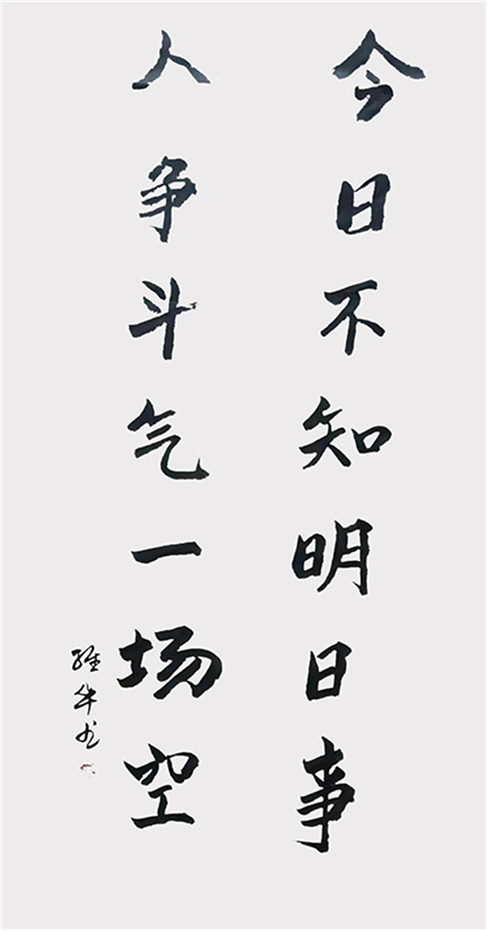 今日不知明日事
人争斗气一场空